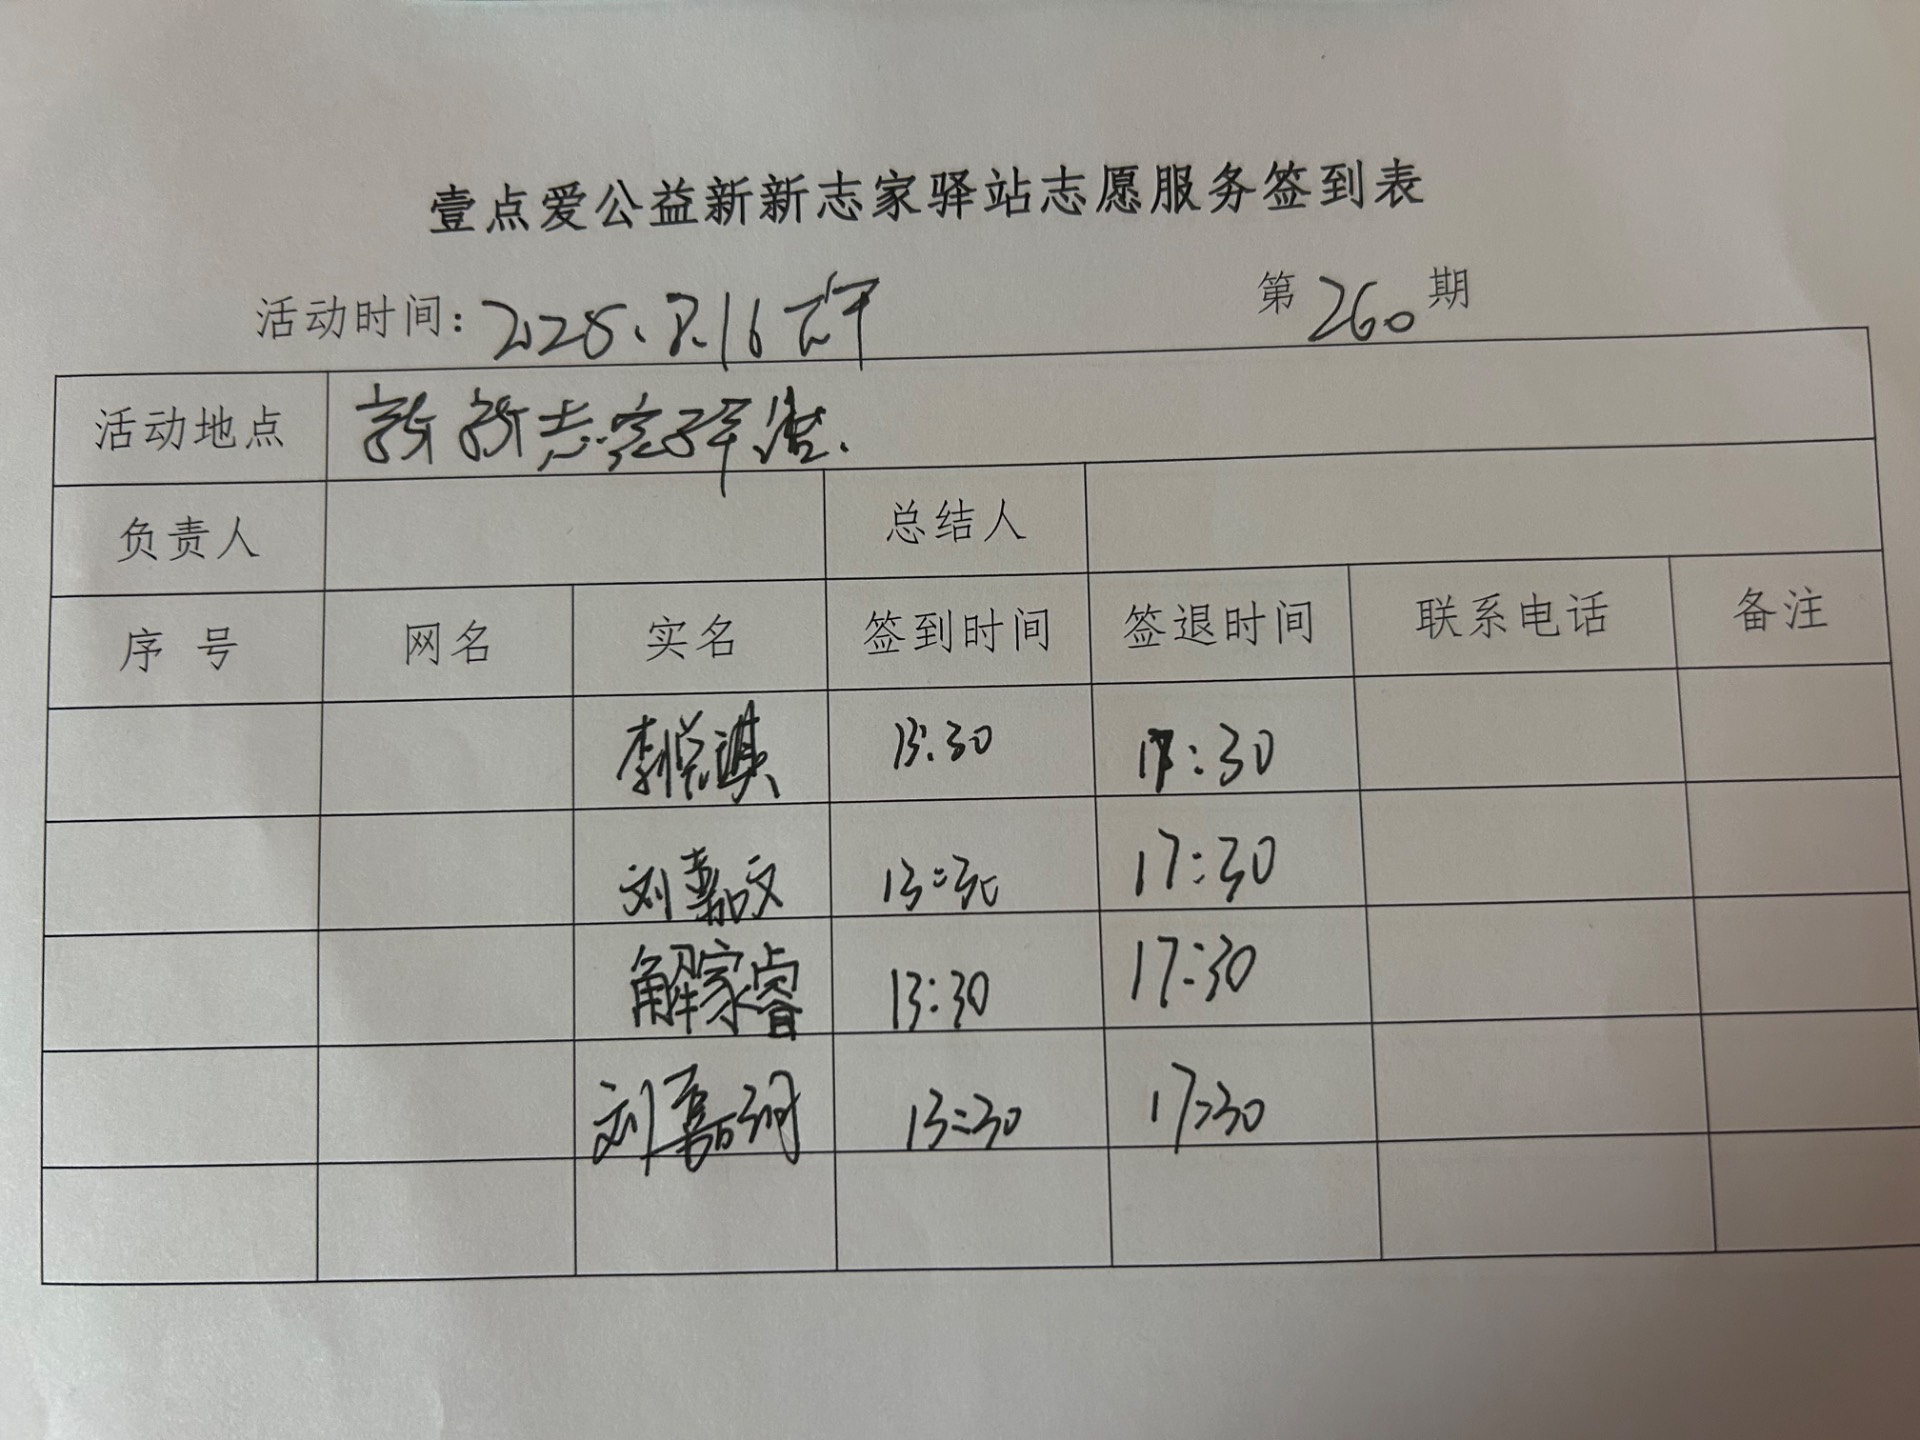 壹点爱公益新新志家驿站志愿服务签到表
活动时间：2025.8.16 下午 第 260 期
活动地点 新新志家驿站.
负责人 总结人
序 号 网名 实名 签到时间 签退时间 联系电话 备注
李悦淇 13:30 17:30
刘嘉文 13:30 17:30
解家睿 13:30 17:30
刘嘉 13:30 17:30